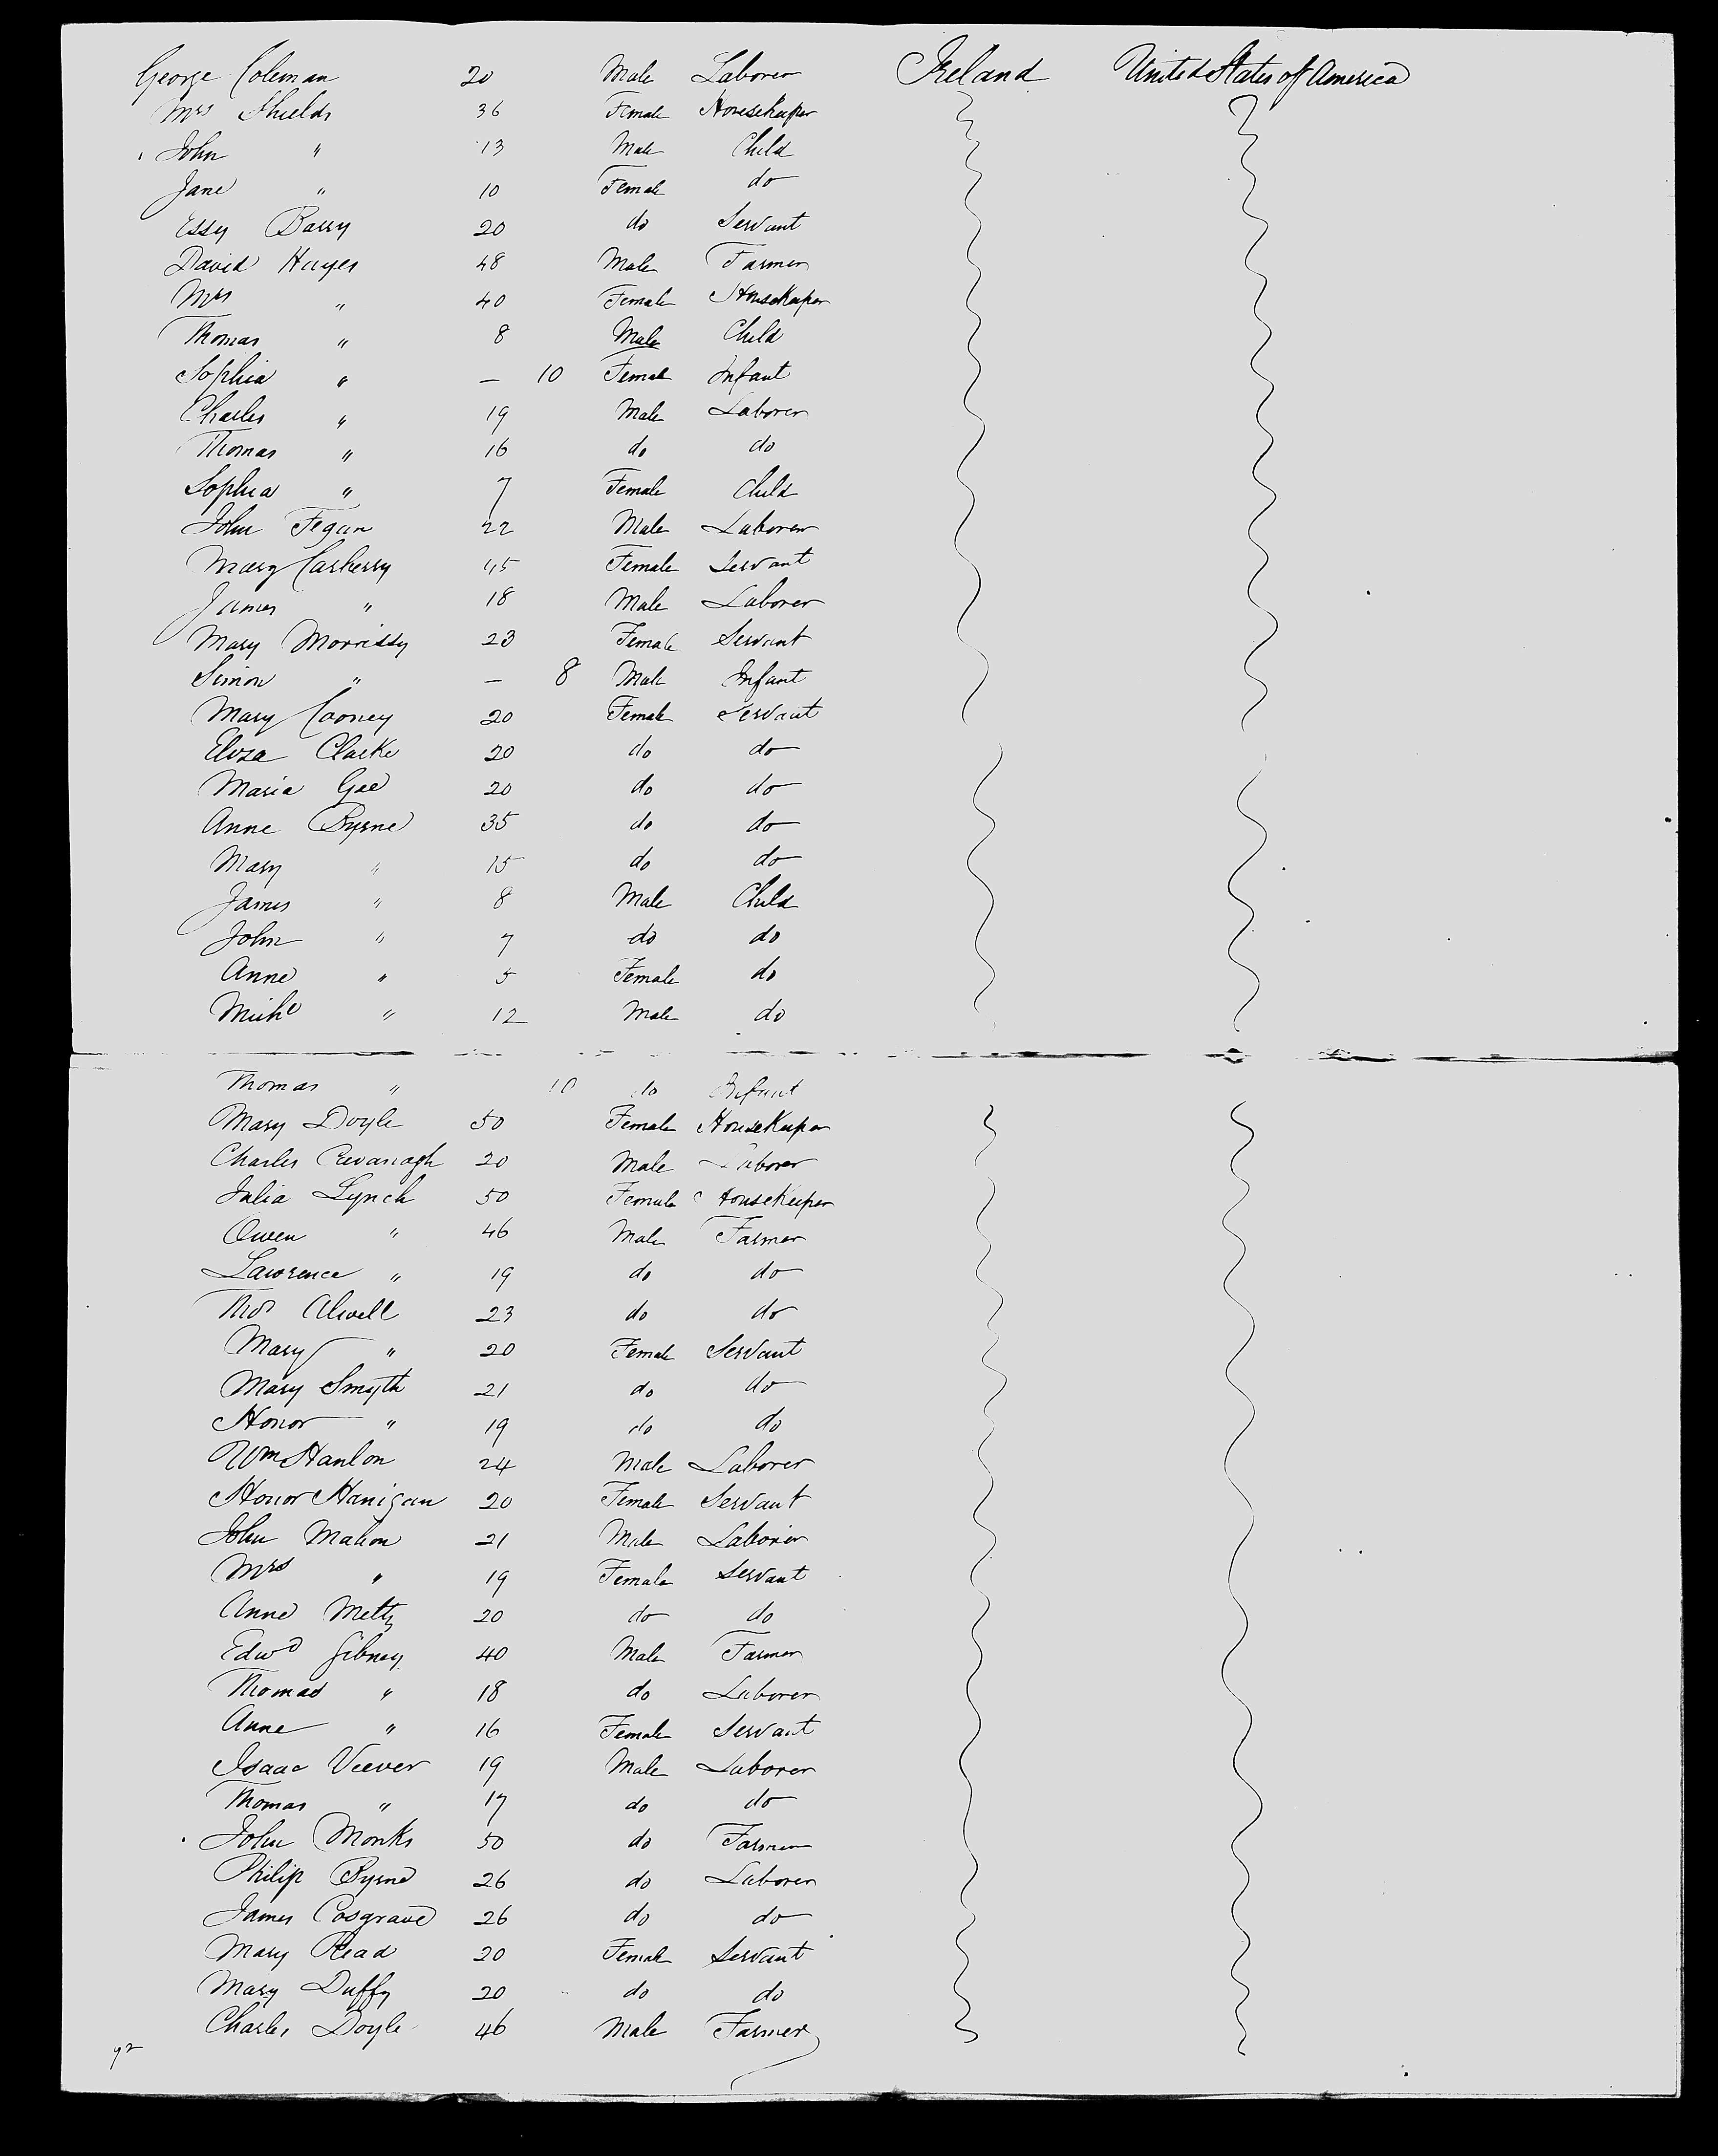 George Coleman 20 Male Laborer Ireland United States of America
Mrs Shields 36 Female Housekeeper
John " 13 Male Child
Jane " 10 Female do
Essy Barry 20 do Servant
David Hayes 48 Male Farmer
Mrs " 40 Female Housekeeper
Thomas " 8 Male Child
Sophia " — 10 Female Infant
Charles " 19 Male Laborer
Thomas " 16 do do
Sophia " 7 Female Child
John Fegan 22 Male Laborer
Mary Carberry 45 Female Servant
James " 18 Male Laborer
Mary Morrissy 23 Female Servant
Simon " — 8 Male Infant
Mary Cooney 20 Female Servant
Eliza Clarke 20 do do
Maria Gee 20 do do
Anne Byrne 35 do do
Mary " 15 do do
James " 8 Male Child
John " 7 do do
Anne " 5 Female do
Michl " 12 Male do
Thomas " 10 do Infant
Mary Doyle 50 Female Housekeeper
Charles Cavanagh 20 Male Laborer
Julia Lynch 50 Female Housekeeper
Owen " 46 Male Farmer
Lawrence " 19 do do
Thos Alwell 23 do do
Mary " 20 Female Servant
Mary Smyth 21 do do
Honor " 19 do do
Wm Hanlon 24 Male Laborer
Honor Hanigan 20 Female Servant
John Mahon 21 Male Laborer
Mrs " 19 Female Servant
Anne 20 do do
Edwd Gibney 40 Male Farmer
Thomas " 18 do Laborer
Anne " 16 Female Servant
Isaac Viever 19 Male Laborer
Thomas " 17 do do
John Monks 50 do Farmer
Philip Byrne 26 do Laborer
James Cosgrave 26 do do
Mary Read 20 Female Servant
Mary Duffy 20 do do
Charles Doyle 46 Male Farmer